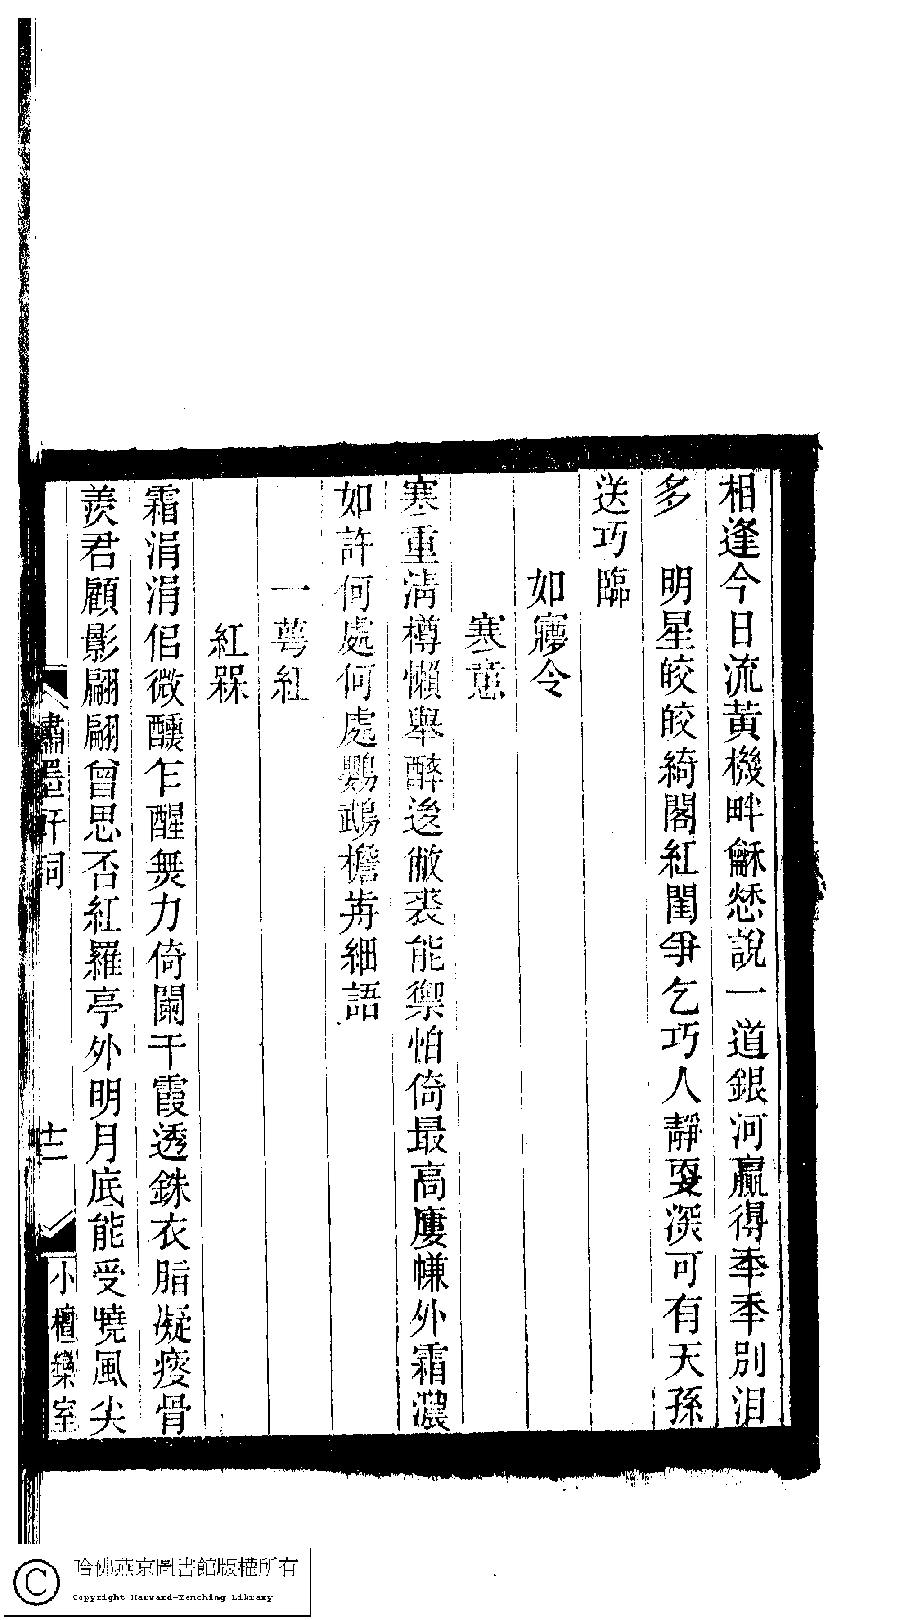 相逢今日流黃機畔龢愁說一道銀河贏得秊秊別淚
多　明星皎皎綺閣紅閨爭乞巧人靜夜深可有天孫
送巧臨
如寢令
寒意
寒重清樽懶舉醉後敝裘能禦怕倚最高廔㡘外霜濃
如許何處何處鸚鵡檐歬細語
一萼紅
紅槑
霜涓涓侶微醺乍醒無力倚闌干霞透銖衣脂凝瘦骨
羨君顧影翩翩曾思否紅羅亭外明月底能受曉風尖
軒詞
十二
小檀欒室
哈佛燕京圖書館版權所有
Copyright Harvard-Yenching Library